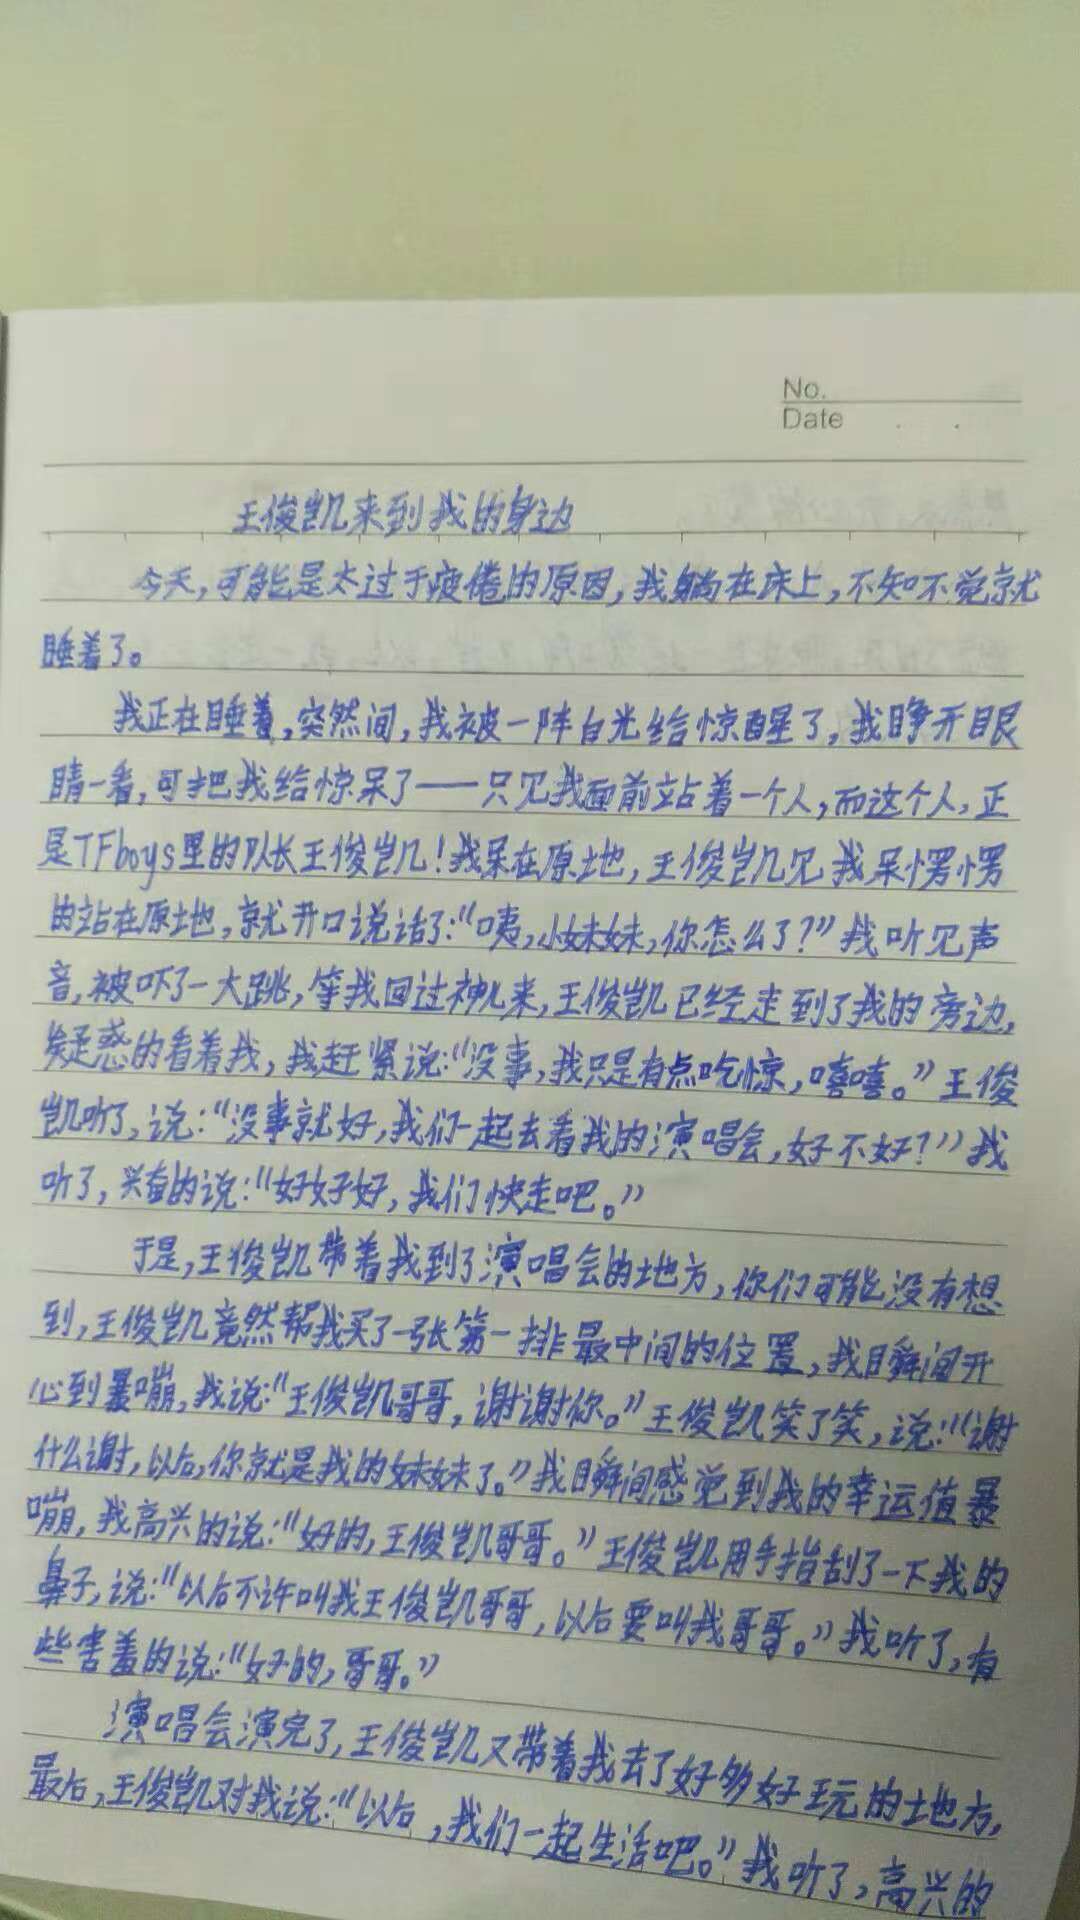 No.
Date
王俊凯来到我的身边
今天,可能是太过于疲倦的原因,我躺在床上,不知不觉就
睡着了。
我正在睡着,突然间,我被一阵白光给惊醒了,我睁开眼
睛一看,可把我给惊呆了——只见我面前站着一个人,而这个人,正
是TFboys里的队长王俊凯!我呆在原地,王俊凯见我呆愣愣
的站在原地,就开口说话了:“咦,小妹妹,你怎么了?”我听见声
音,被吓了一大跳,等我回过神来,王俊凯已经走到了我的旁边,
疑惑的看着我,我赶紧说:“没事,我只是有点吃惊,嘻嘻。”王俊
凯听了,说:“没事就好,我们一起去看我的演唱会,好不好?”我
听了,兴奋的说:“好好好,我们快走吧。”
于是,王俊凯带着我到了演唱会的地方,你们可能没有想
到,王俊凯竟然帮我买了一张第一排最中间的位置,我瞬间开
心到暴嘣,我说:“王俊凯哥哥,谢谢你。”王俊凯笑了笑,说:“谢
什么谢,以后,你就是我的妹妹了。”我瞬间感觉到我的幸运值暴
嘣,我高兴的说:“好的,王俊凯哥哥。”王俊凯用手指刮了一下我的
鼻子,说:“以后不许叫我王俊凯哥哥,以后要叫我哥哥。”我听了,有
些害羞的说:“好的,哥哥。”
演唱会演完了,王俊凯又带着我去了好多好玩的地方,
最后,王俊凯对我说:“以后,我们一起生活吧。”我听了,高兴的